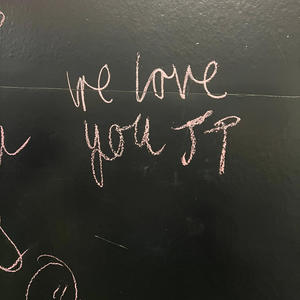 we love
you JP